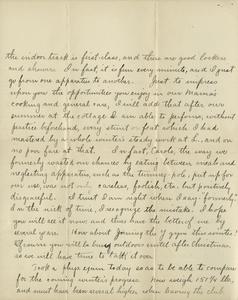 the indoor track is first-class, and there are good lockers
and showers. In fact, it is fun every minute, and I just
go from one apparatus to another. Just to impress
upon you the opportunities you enjoy in our Mama's
cooking and general care, I will add that after our
summer at the cottage I am able to perform, without
practice beforehand, every stunt or feat which I had
mastered by a whole winter's steady work at it, and on
no poor fare at that. In fact, Carol, the way we
formerly wasted our chances by eating between meals and
neglecting apparatus, such as the turning-pole, put up for
our use, was not only careless, foolish, etc. but positively
disgraceful. I trust I am right when I say "formerly"
in the nick of time, I recognize the mistake. I hope
you will see it now and thus take the letter of
several years. How about joining the "Y" gym this winter?
Of course you will be busy outdoor until after Christmas,
so we will have time to talk it over.
Took a phys. exam today so as to be able to compare
for the coming winter's progress. Now weigh 151 lbs,
and must have been several higher when leaving the club